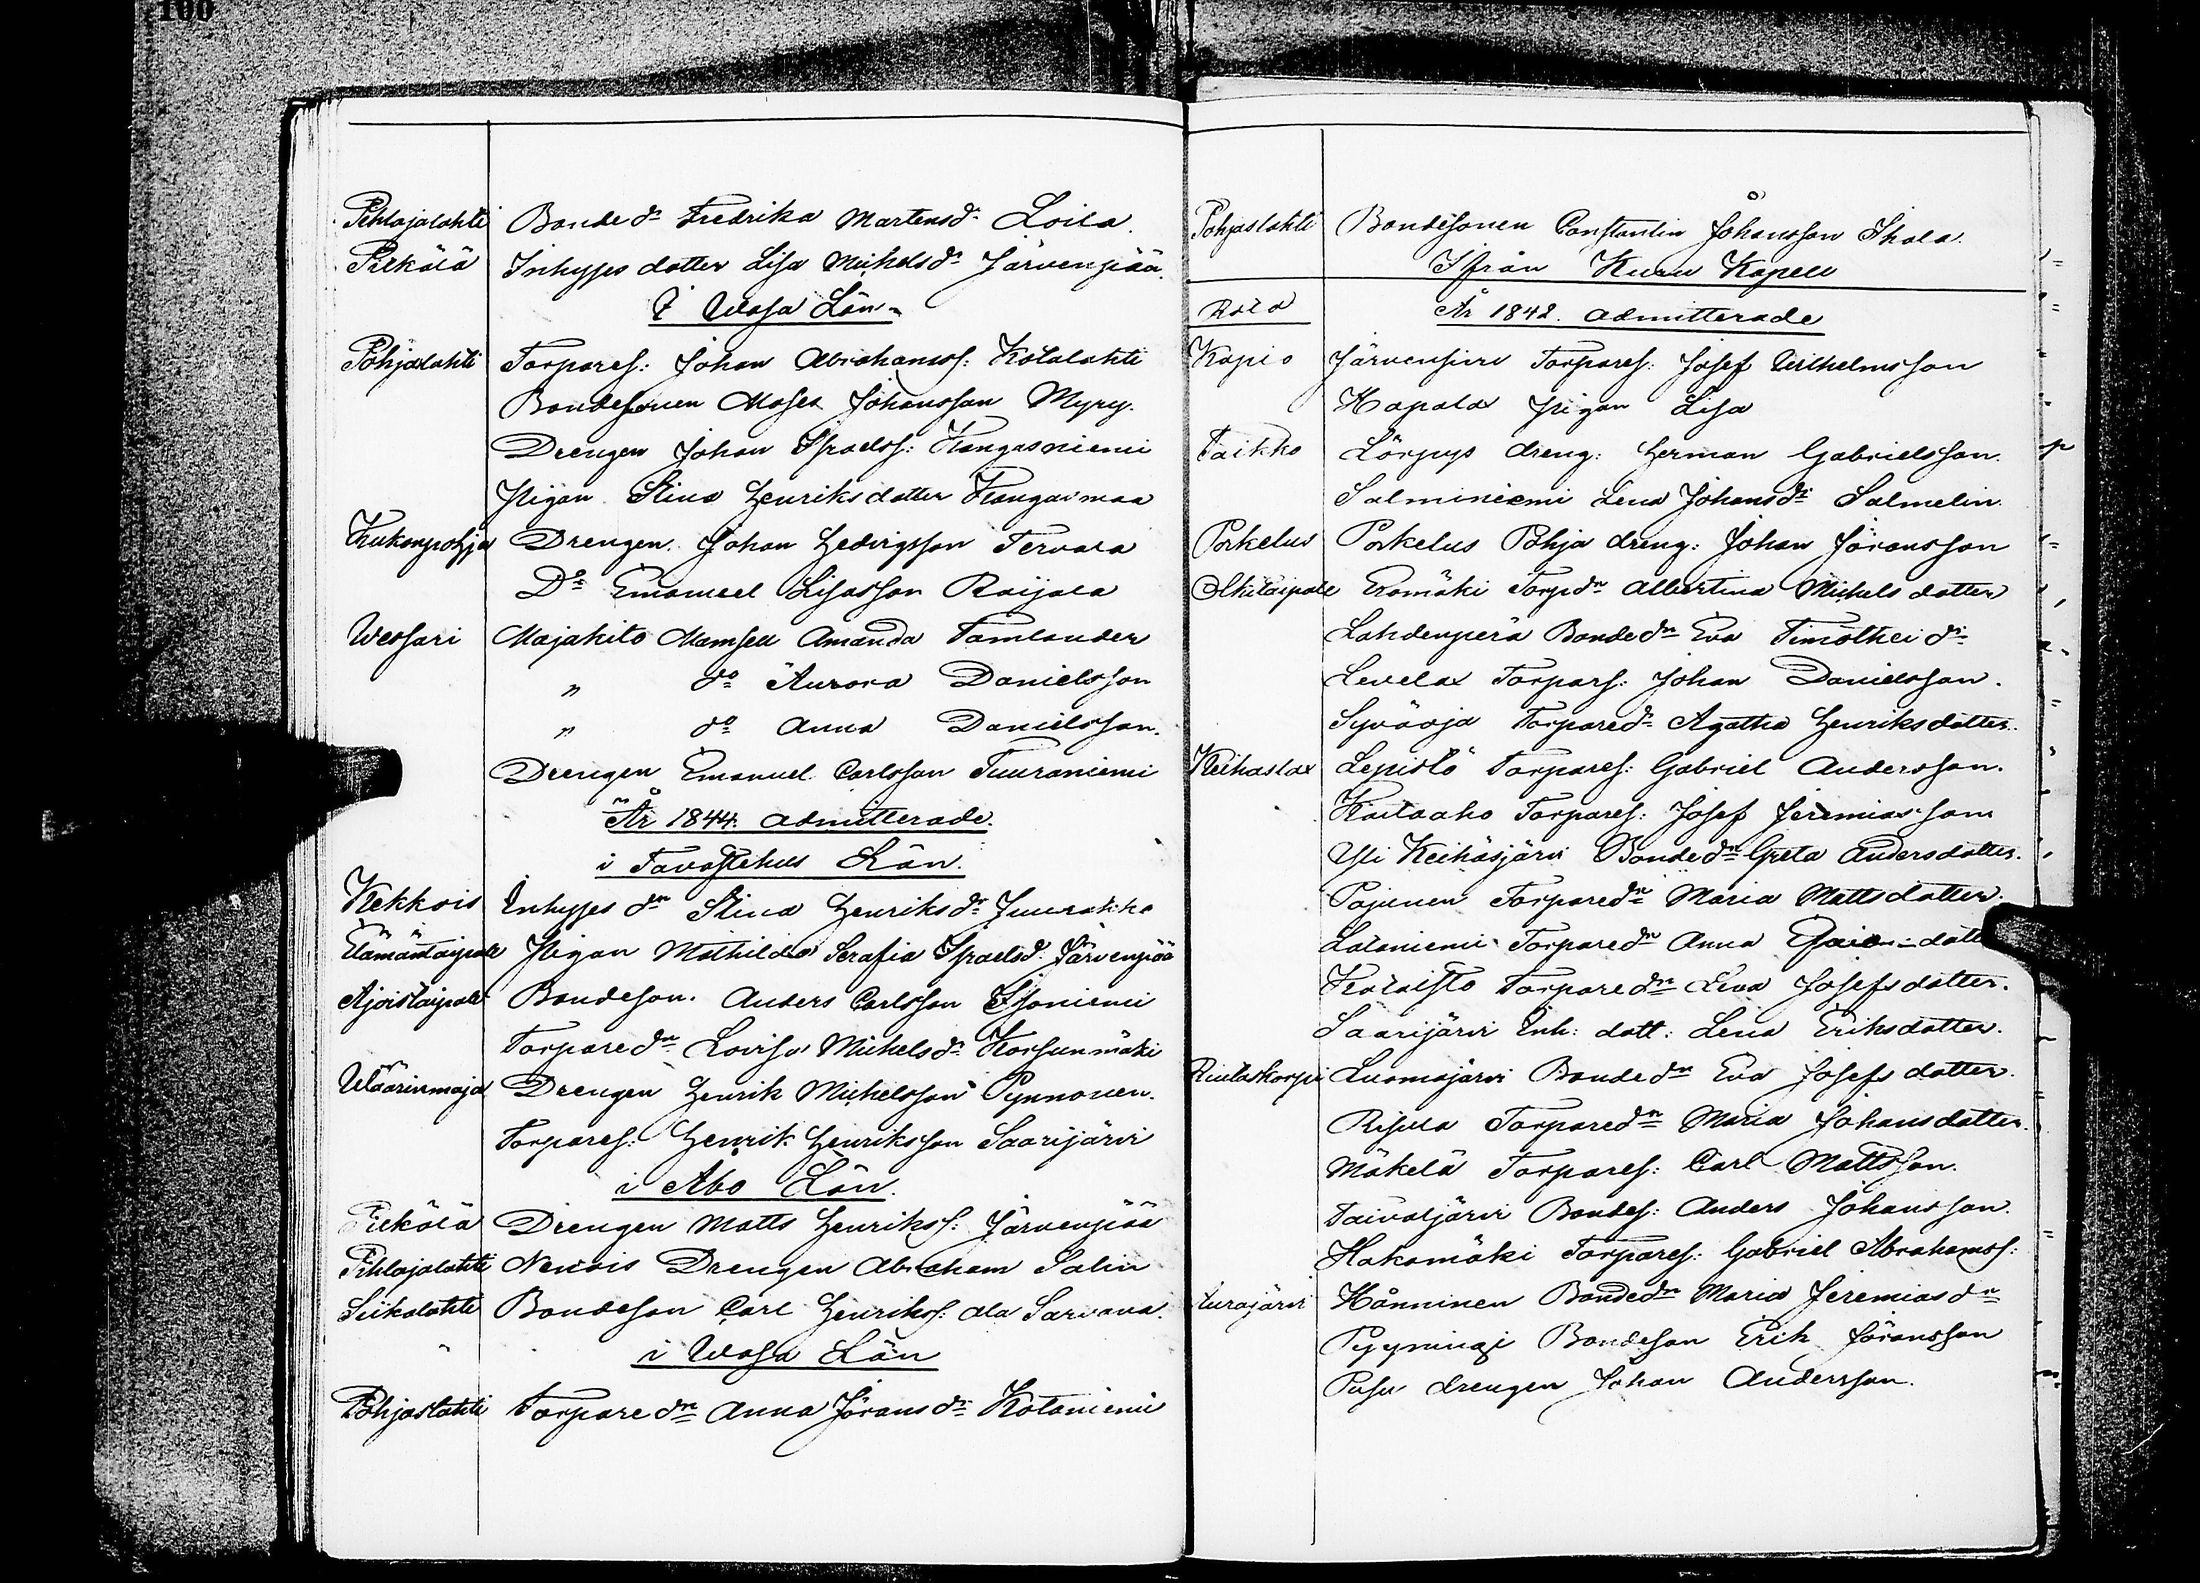 100
Pihlajalahti Bonde dr Fredrika Martensdr Loila.
Pilkälä Inhyses dotter Lisa Michelsdr Järvenpää.
I Wasa Län
Pohjaslahti Torpares: Johan Abrahamss: Kotalahti
Bondesonen Moses Johansson Myry.
Drengen Johan Israelss: Kangasniemi
Pigan Stina Henriksdotter Kangasmaa
Kukonpohja Drengen Johan Hedvigsson Tervala
Do Emanuel Lisasson Raijala
Wessari Majakito Mamsell Amanda Tamlander
" do Aurora Danielsson
" do Anna Danielsson.
Drengen Emanuel Carlsson Tuuraniemi
År 1844. admitterade.
i Tavastehus Län.
Kekkois Inhyses dr Stina Henriksdr Juurakko
Elämäntaipale Pigan Mathilda Serafia Israelsd. Järvenpää
Ajoistaipale Bondeson. Anders Carlsson Isoniemi
Torparedr Lovisa Michelsdr Korsunmäki
Wäärinmaja Drengen Henrik Michelsson Pynnonen.
Torpares: Henrik Henriksson Saarijärvi
i Åbo Län.
Pilkälä Drengen Matts Henrikss: Järvenpää
Pihlajalahti Nevois Drengen Abraham Salin
Siikalahti Bondeson Carl Henrikss: Ala Sarvana.
i Wasa Län
Pohjaslahti Torpare dr Anna Jöransdr Kotaniemi
Pohjaslahti Bondesonen Constantin Johansson Ikala.
Ifrån Kuru Kapell
Rota År 1842. admitterade
Kapio Järvensivu Torpares: Josef Wilhelmsson
Kapala Pigan Lisa
Paikko Lörpys dreng: Herman Gabrielsson.
Salminiemi Lena Johansdr Salmelin.
Parkelus Parkelus Pohja dreng: Johan Jöransson
Olkitaipale Eromäki Torpdr Albertina Michelsdotter
Lahdenperä Bondedr Eva Timothei dr
Levelax Torpars: Johan Danielsson.
Syväoja Torparedr Agatha Henriksdotter.
Keihaslax Lepistö Torpares: Gabriel Andersson.
Kaitaaho Torpares: Josef Jeremiasson
Yli Keihäsjärvi Bondedr Greta Andersdotter.
Pajunen Torparedr Maria Mattsdotter.
Lataniemi Torparedr Anna Esaiæ dott
Kotaisto Torparedr Lena Josefsdotter.
Saarijärvi Inh: dott: Lena Eriksdotter.
Riutaskorpi Luomajärvi Bondedr Eva Josefs dotter.
Risula Torparedr Maria Johansdotter.
Mäkelä Torpares: Carl Mattsson.
Taivaljärvi Bondes: Anders Johansson.
Hakamäki Torpares: Gabriel Abrahamss:
Aurajärvi Hånninen Bondedr Maria Jeremiasdr
Pyyningi Bondeson Erik Jöransson
Pusu drengen Johan Andersson.